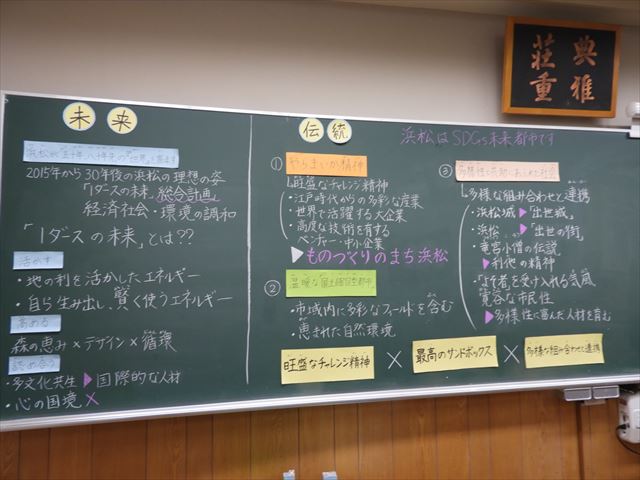 典雅
荘重
未来
2015年から30年後の浜松の理想の姿
「1ダースの未来」総合計画
経済社会・環境の調和
「1ダースの未来」とは??
活かす
・地の利を活かしたエネルギー
・自ら生み出し、賢く使うエネルギー
高める
森の恵み×デザイン×循環
認め合う
・多文化共生▶国際的な人材
・心の国境×
伝統
浜松はSDGs未来都市です
① やらまいか精神
旺盛なチャレンジ精神
・江戸時代からの多彩な産業
・世界で活躍する大企業
・高度な技術を有する
ベンチャー・中小企業
▶ものづくりのまち浜松
②
・市域内に多彩なフィールドを含む
・恵まれた自然環境
③
多様な組み合わせと連携
・浜松城▶"出世城"
・浜松▶"出世の街"
・竜宮小僧の伝説
▶利他の精神
・"よそ者"を受け入れる気風
寛容な市民性
▶多様性に富んだ人材を育む
旺盛なチャレンジ精神×最高のサンドボックス×多様な組み合わせと連携